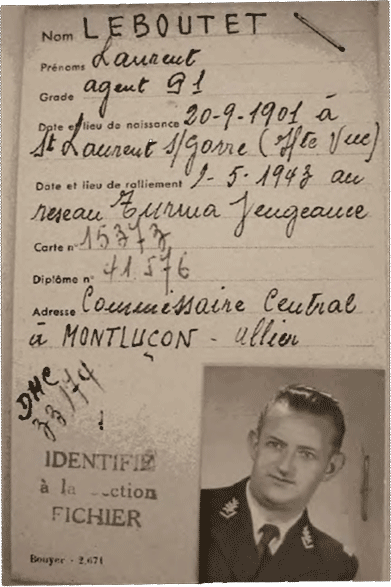 Nom LEBOUTET
Prénoms Laurent
Grade agent P1
Date et lieu de naissance 20-9-1901 à
St Laurent s/Gorre (Hte Vne)
Date et lieu de ralliement 1-5-1943 au
reseau Turma Vengeance
Carte n° 15373
Diplôme n° 41.576
Adresse Commissaire Central
à MONTLUÇON - Allier
DMC
33174
IDENTIFIÉ
à la section
FICHIER
Bouyer - 2.671